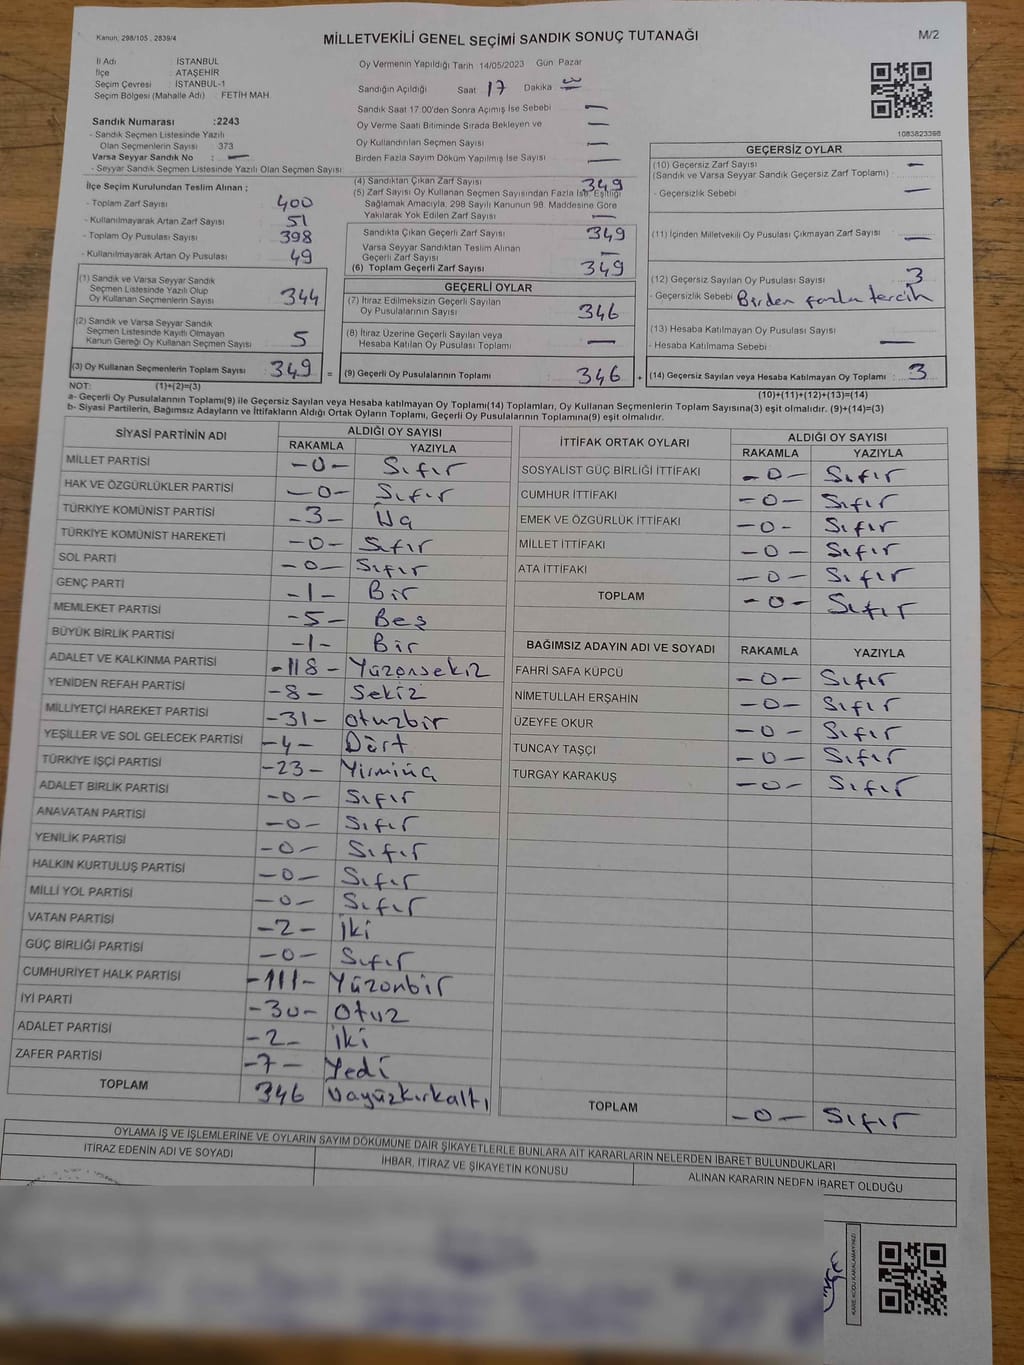 Kanun, 298/105 , 2839/4
MİLLETVEKİLİ GENEL SEÇİMİ SANDIK SONUÇ TUTANAĞI
M/2
İl Adı : İSTANBUL
İlçe : ATAŞEHİR
Seçim Çevresi : İSTANBUL-1
Seçim Bölgesi (Mahalle Adı) : FETİH MAH.
Sandık Numarası :2243
- Sandık Seçmen Listesinde Yazılı
Olan Seçmenlerin Sayısı : 373
Varsa Seyyar Sandık No : —
- Seyyar Sandık Seçmen Listesinde Yazılı Olan Seçmen Sayısı
İlçe Seçim Kurulundan Teslim Alınan ;
- Toplam Zarf Sayısı : 400
- Kullanılmayarak Artan Zarf Sayısı : 51
- Toplam Oy Pusulası Sayısı : 398
- Kullanılmayarak Artan Oy Pusulası : 49
(1) Sandık ve Varsa Seyyar Sandık
Seçmen Listesinde Yazılı Olup
Oy Kullanan Seçmenlerin Sayısı : 344
(2) Sandık ve Varsa Seyyar Sandık
Seçmen Listesinde Kayıtlı Olmayan
Kanun Gereği Oy Kullanan Seçmen Sayısı : 5
(3) Oy Kullanan Seçmenlerin Toplam Sayısı : 349 =
Oy Vermenin Yapıldığı Tarih 14/05/2023 Gün Pazar
Sandığın Açıldığı Saat 17 Dakika
Sandık Saat 17.00'den Sonra Açımış İse Sebebi —
Oy Verme Saati Bitiminde Sırada Bekleyen ve —
Oy Kullandırılan Seçmen Sayısı —
Birden Fazla Sayım Döküm Yapılmış İse Sayısı —
(4) Sandıktan Çıkan Zarf Sayısı 349
(5) Zarf Sayısı Oy Kullanan Seçmen Sayısından Fazla İse, Eşitliği
Sağlamak Amacıyla, 298 Sayılı Kanunun 98. Maddesine Göre
Yakılarak Yok Edilen Zarf Sayısı —
Sandıkta Çıkan Geçerli Zarf Sayısı : 349
Varsa Seyyar Sandıktan Teslim Alınan
Geçerli Zarf Sayısı —
(6) Toplam Geçerli Zarf Sayısı : 349
GEÇERLİ OYLAR
(7) İtiraz Edilmeksizin Geçerli Sayılan
Oy Pusulalarının Sayısı : 346
(8) İtiraz Üzerine Geçerli Sayılan veya
Hesaba Katılan Oy Pusulası Toplamı : —
(9) Geçerli Oy Pusulalarının Toplamı : 346 +
1083823398
GEÇERSİZ OYLAR
(10) Geçersiz Zarf Sayısı —
(Sandık ve Varsa Seyyar Sandık Geçersiz Zarf Toplamı) :
- Geçersizlik Sebebi : —
(11) İçinden Milletvekili Oy Pusulası Çıkmayan Zarf Sayısı : —
(12) Geçersiz Sayılan Oy Pusulası Sayısı : 3
- Geçersizlik Sebebi : Birden fazla tercih
(13) Hesaba Katılmayan Oy Pusulası Sayısı :
- Hesaba Katılmama Sebebi : —
(14) Geçersiz Sayılan veya Hesaba Katılmayan Oy Toplamı : 3
NOT: (1)+(2)=(3)
(10)+(11)+(12)+(13)=(14)
a- Geçerli Oy Pusulalarının Toplamı(9) ile Geçersiz Sayılan veya Hesaba katılmayan Oy Toplamı(14) Toplamları, Oy Kullanan Seçmenlerin Toplam Sayısına(3) eşit olmalıdır. (9)+(14)=(3)
b- Siyasi Partilerin, Bağımsız Adayların ve İttifakların Aldığı Ortak Oyların Toplamı, Geçerli Oy Pusulalarının Toplamına(9) eşit olmalıdır.
SİYASİ PARTİNİN ADI
ALDIĞI OY SAYISI
RAKAMLA YAZIYLA
MİLLET PARTİSİ -0- Sıfır
HAK VE ÖZGÜRLÜKLER PARTİSİ -0- Sıfır
TÜRKİYE KOMÜNİST PARTİSİ -3- Üç
TÜRKİYE KOMÜNİST HAREKETİ -0- Sıfır
SOL PARTİ -0- Sıfır
GENÇ PARTİ -1- Bir
MEMLEKET PARTİSİ -5- Beş
BÜYÜK BİRLİK PARTİSİ -1- Bir
ADALET VE KALKINMA PARTİSİ -118- Yüzonsekiz
YENİDEN REFAH PARTİSİ -8- Sekiz
MİLLİYETÇİ HAREKET PARTİSİ -31- Otuzbir
YEŞİLLER VE SOL GELECEK PARTİSİ -4- Dört
TÜRKİYE İŞÇİ PARTİSİ -23- Yirmiüç
ADALET BİRLİK PARTİSİ -0- Sıfır
ANAVATAN PARTİSİ -0- Sıfır
YENİLİK PARTİSİ -0- Sıfır
HALKIN KURTULUŞ PARTİSİ -0- Sıfır
MİLLİ YOL PARTİSİ -0- Sıfır
VATAN PARTİSİ -2- İki
GÜÇ BİRLİĞİ PARTİSİ -0- Sıfır
CUMHURİYET HALK PARTİSİ -111- Yüzonbir
İYİ PARTİ -30- Otuz
ADALET PARTİSİ -2- İki
ZAFER PARTİSİ -7- Yedi
TOPLAM 346 Üçyüzkırkaltı
İTTİFAK ORTAK OYLARI
ALDIĞI OY SAYISI
RAKAMLA YAZIYLA
SOSYALİST GÜÇ BİRLİĞİ İTTİFAKI -0- Sıfır
CUMHUR İTTİFAKI -0- Sıfır
EMEK VE ÖZGÜRLÜK İTTİFAKI -0- Sıfır
MİLLET İTTİFAKI -0- Sıfır
ATA İTTİFAKI -0- Sıfır
TOPLAM -0- Sıfır
BAĞIMSIZ ADAYIN ADI VE SOYADI RAKAMLA YAZIYLA
FAHRİ SAFA KÜPCÜ -0- Sıfır
NİMETULLAH ERŞAHİN -0- Sıfır
ÜZEYFE OKUR -0- Sıfır
TUNCAY TAŞÇI -0- Sıfır
TURGAY KARAKUŞ -0- Sıfır
TOPLAM -0- Sıfır
OYLAMA İŞ VE İŞLEMLERİNE VE OYLARIN SAYIM DÖKÜMÜNE DAİR ŞİKAYETLERLE BUNLARA AİT KARARLARIN NELERDEN İBARET BULUNDUKLARI
İTİRAZ EDENİN ADI VE SOYADI
İHBAR, İTİRAZ VE ŞİKAYETİN KONUSU
ALINAN KARARIN NEDEN İBARET OLDUĞU
KARE KODU KARALAMAYINIZ!